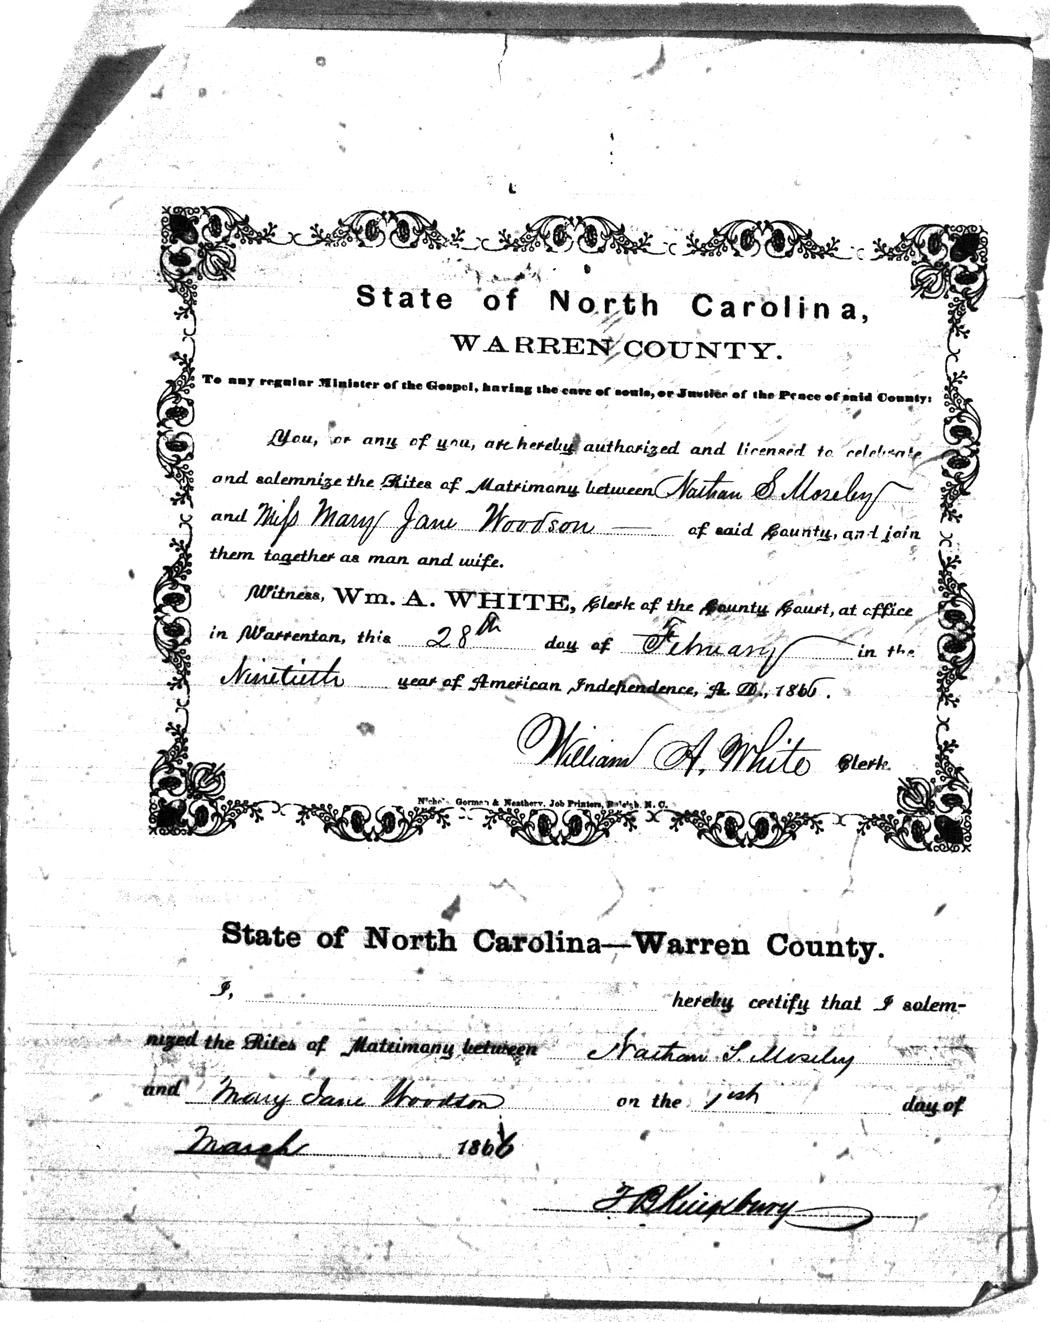 State of North Carolina,
WARREN COUNTY.
To any regular Minister of the Gospel, having the care of souls, or Justice of the Peace of said County:
You, or any of you, are hereby authorized and licensed to celebrate
and solemnize the Rites of Matrimony between Nathan S Moseley
and Miss Mary Jane Woodson of said County, and join
them together as man and wife.
Witness, Wm. A. WHITE, Clerk of the County Court, at office
in Warrenton, this 28th day of February in the
Ninetieth year of American Independence, A. D., 1866.
William A. White Clerk.
Nichols, Gorman & Neathery, Job Printers, Raleigh, N. C.
State of North Carolina—Warren County.
I, hereby certify that I solem-
nized the Rites of Matrimony between Nathan S. Moseley
and Mary Jane Woodson on the 1st day of
March 1866
Kingsbury